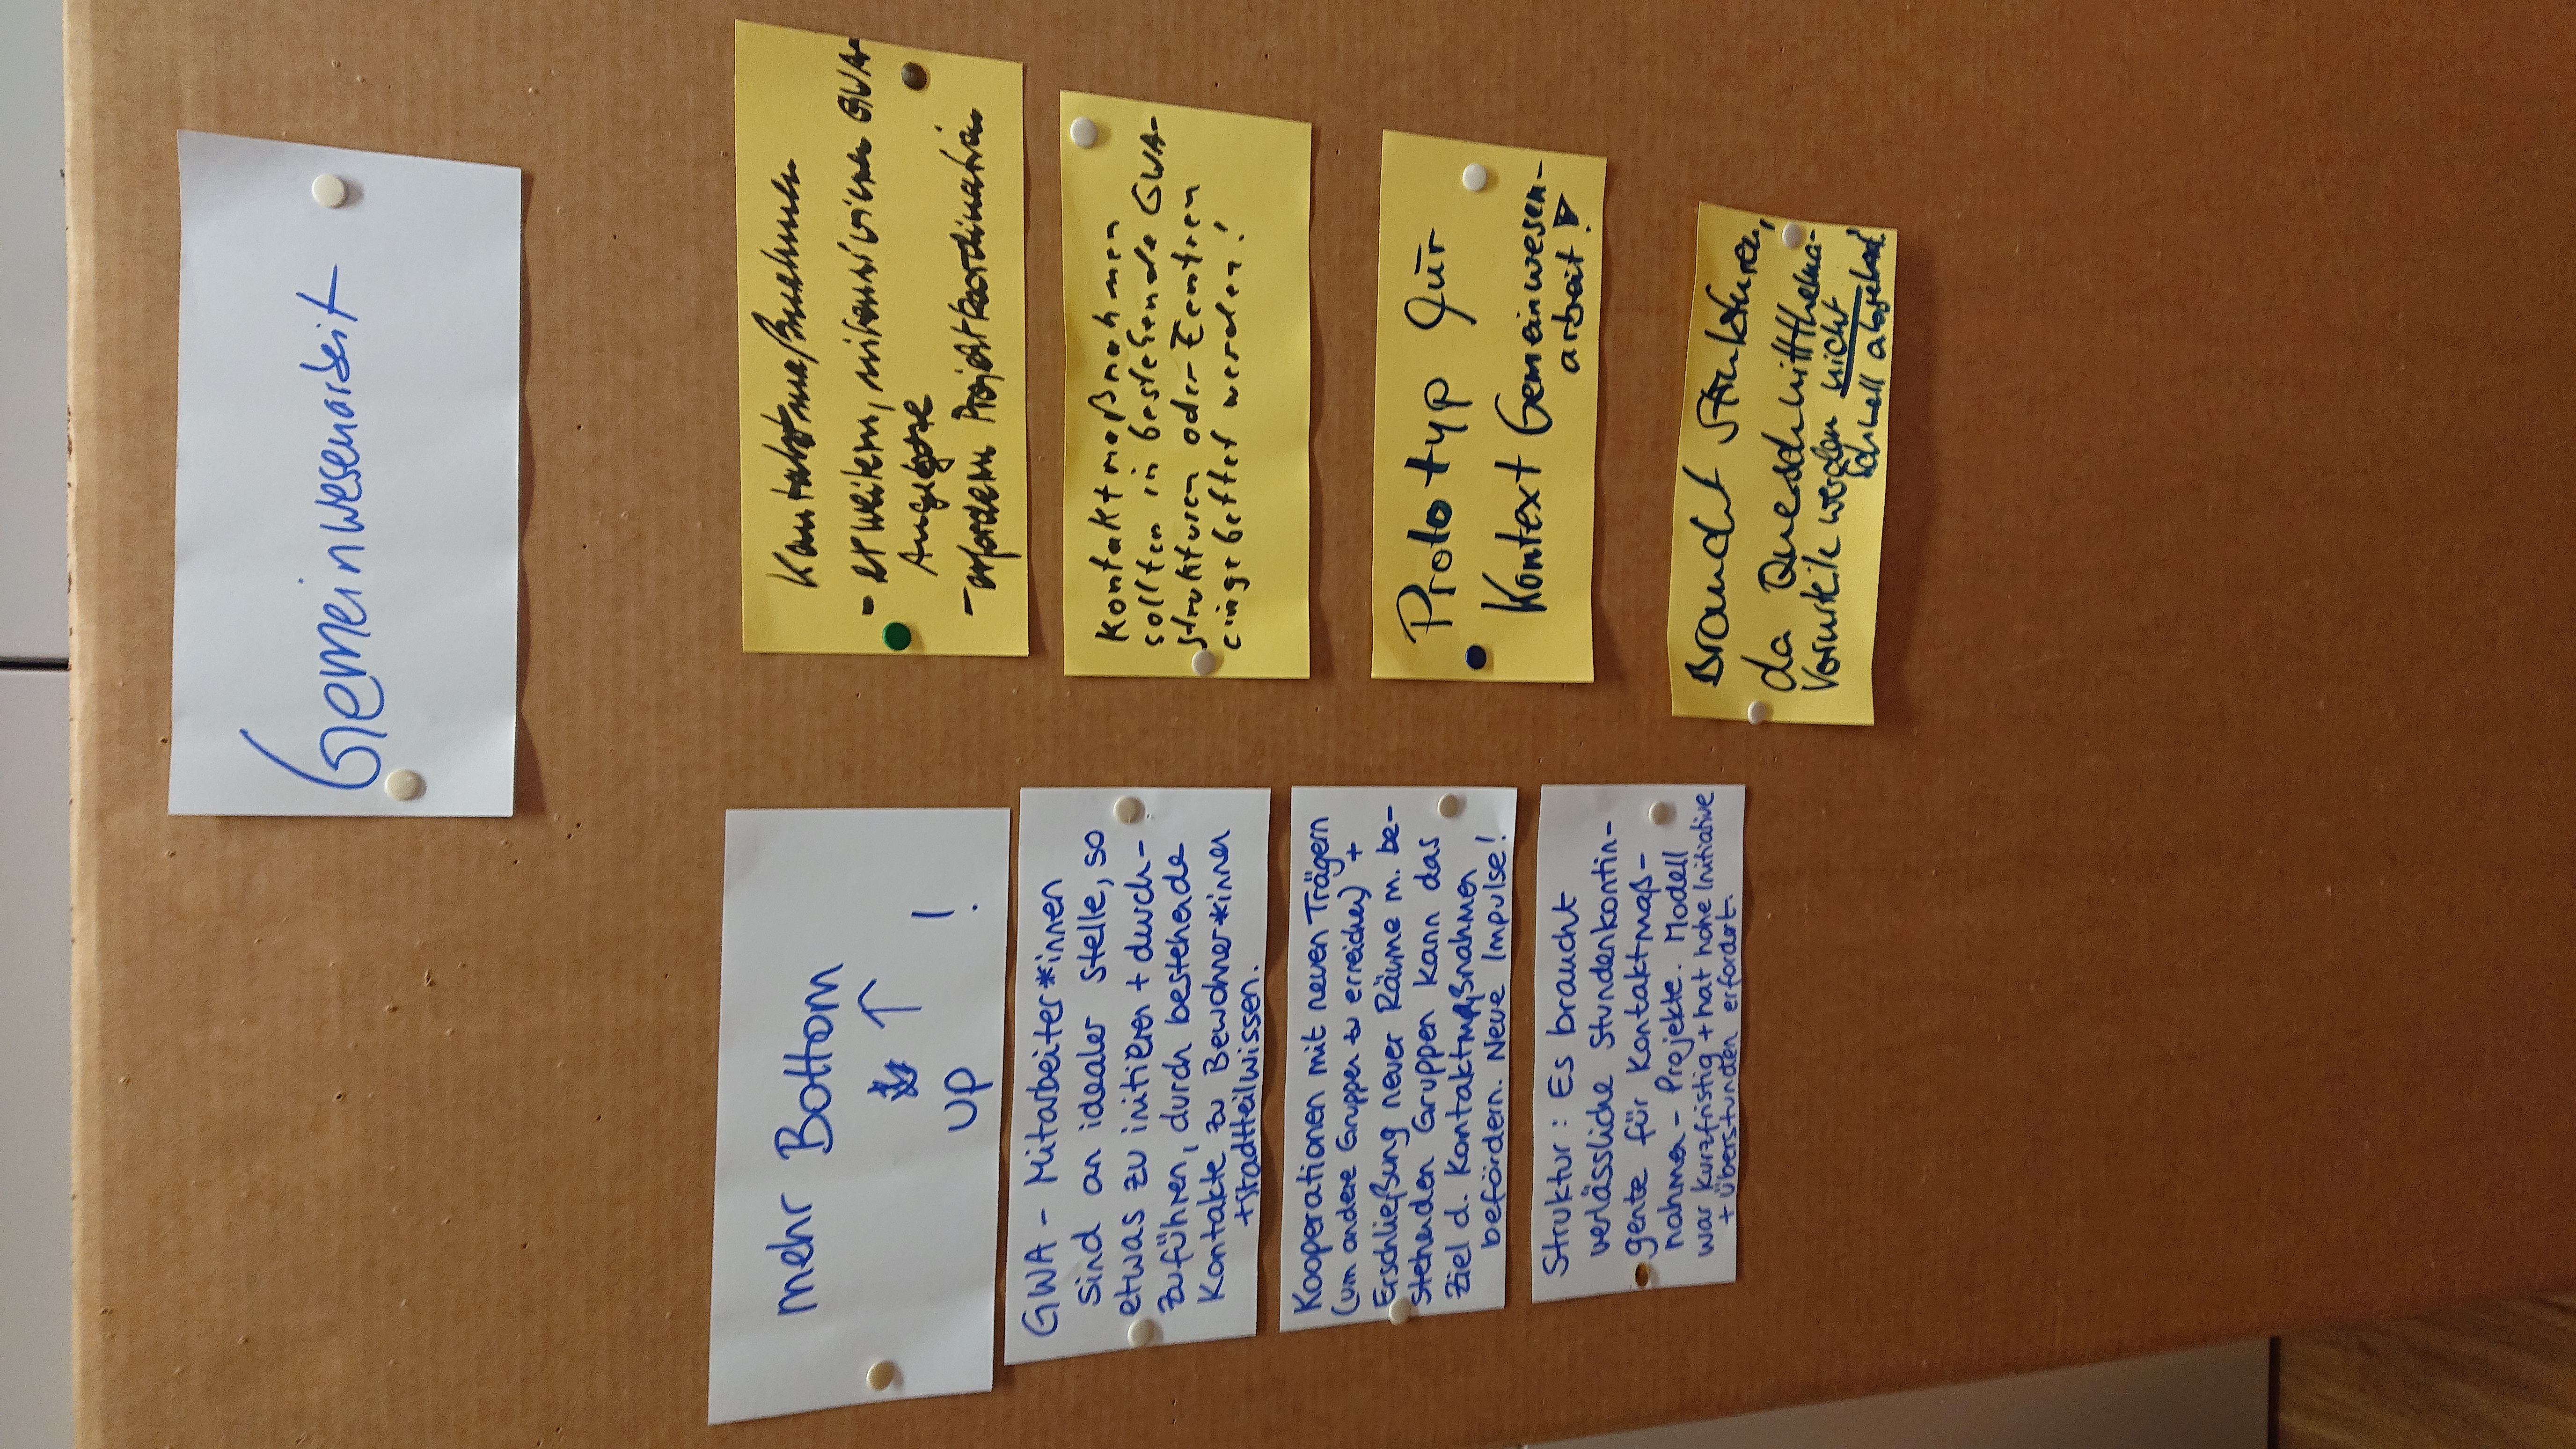 Gemeinwesenarbeit
mehr Bottom
↑
up !
GWA - Mitarbeiter*innen
sind an idealer Stelle, so
etwas zu initiieren + durch-
zuführen, durch bestehende
Kontakte zu Bewohner*innen
+ Stadtteilwissen.
Kooperationen mit neuen Trägern
(um andere Gruppen zu erreichen) +
Erschließung neuer Räume m. be-
stehenden Gruppen kann das
Ziel d. Kontaktmaßnahmen
befördern. Neue Impulse!
Struktur: Es braucht
verlässliche Stundenkontin-
gente für Kontaktmaß-
nahmen - Projekte. Modell
war kurzfristig + hat hohe Initiative
+ Überstunden erfordert.
Kontaktmaßnahmen
- erweitern, intensivieren GWA-
Angebote
- erfordern Projektkoordination
Kontaktmaßnahmen
sollten in bestehende GWA-
Strukturen oder Zentren
eingebettet werden!
Prototyp für
Kontext Gemeinwesen-
arbeit!
Braucht Strukturen,
da Querschnittthema-
Vorurteile werden nicht
schnell abgebaut